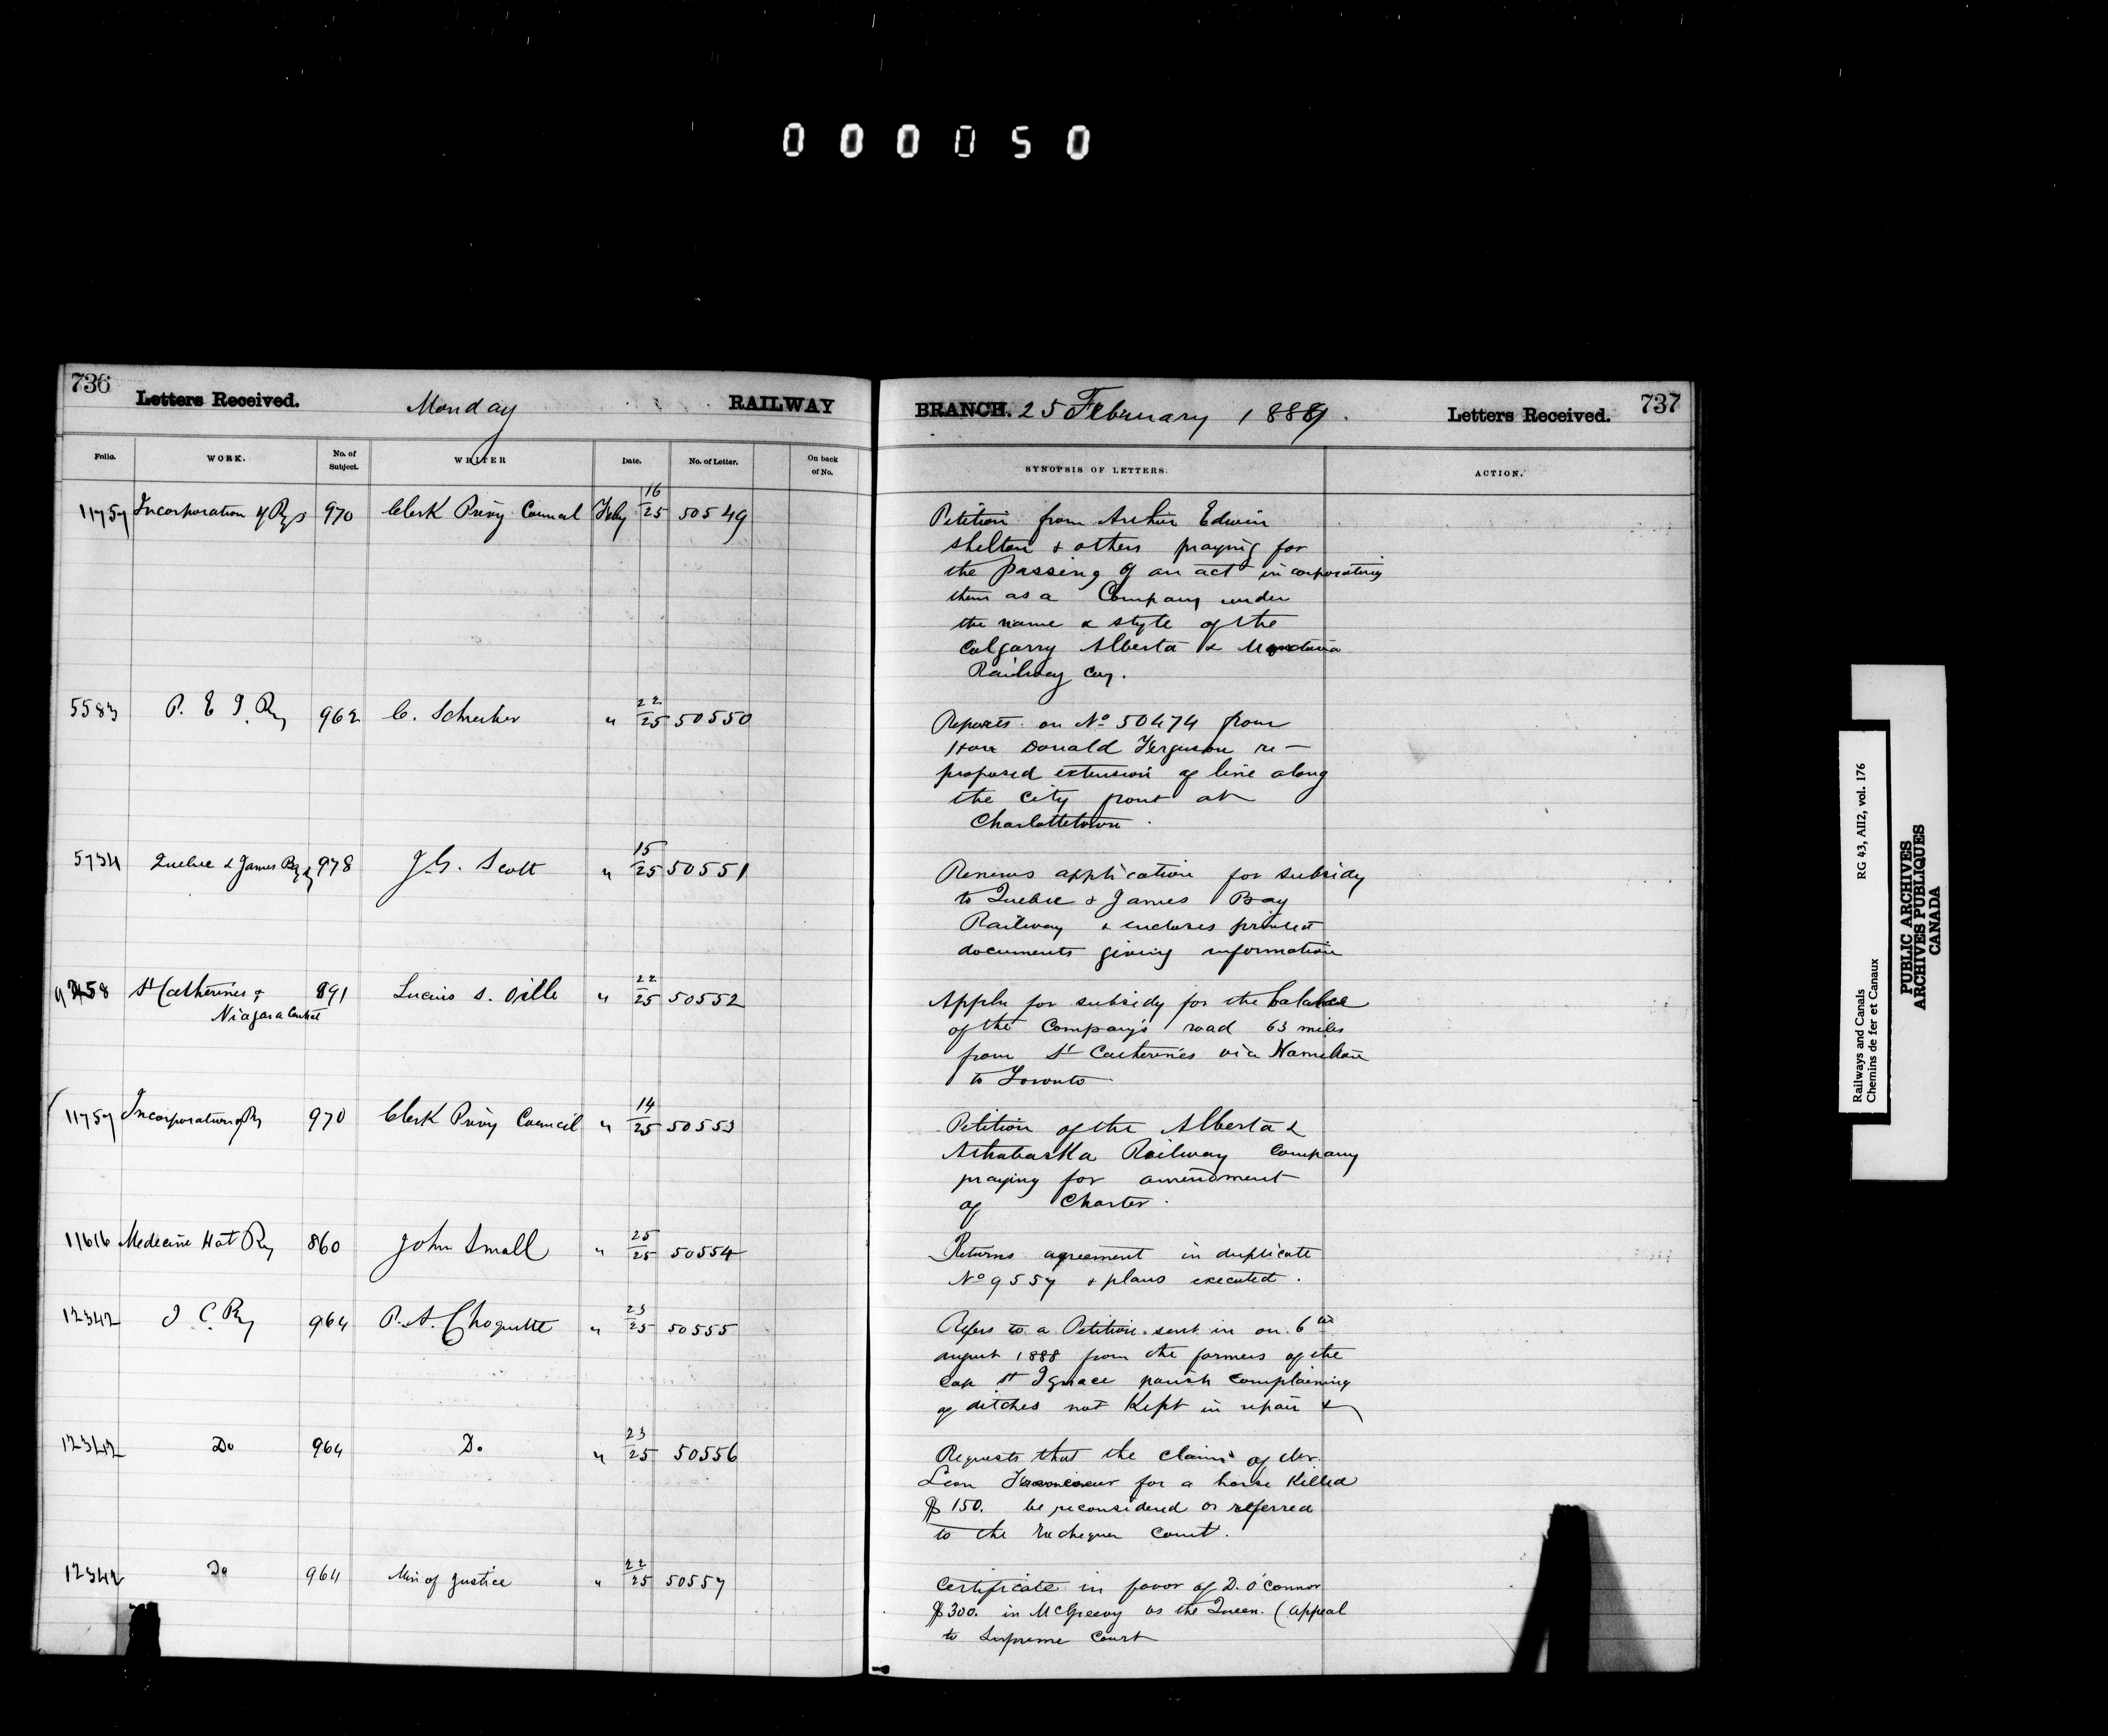 000050
736
Letters Received.
Monday
RAILWAY
Folio.
WORK.
No. of Subject.
WRITER
Date.
No. of Letter.
On back of No.
11757 Incorporation of Rys 970 Clerk Privy Council Feby 16/25 50549
5583 P. E I. Ry 962 C. Schreiber " 22/25 50550
5734 Quebec & James Bay Ry 978 J.G. Scott " 15/25 50551
9258 St Catherines & 891 Lucius S. Oille " 22/25 50552
Niagara Central
11757 Incorporation of Ry 970 Clerk Privy Council " 14/25 50553
11616 Medecine Hat Ry 860 John Small " 25/25 50554
12342 I C. Ry 964 P. A. Choquette " 23/25 50555
12342 Do 964 Do " 23/25 50556
12342 Do 964 Min of Justice " 22/25 50557
BRANCH. 25 February 1889.
Letters Received.
737
SYNOPSIS OF LETTERS.
ACTION.
Petition from Arthur Edwin
Shelton & others praying for
the passing of an act incorporating
them as a Company under
the name & style of the
Calgarry Alberta & Montana
Railway Coy.
Reports on No 50474 from
Hon Donald Ferguson re -
proposed extension of line along
the city front at
Charlottetown.
Renews application for subsidy
to Quebec & James Bay
Railway & encloses printed
documents giving information
Applies for subsidy for the balance
of the Company's road 63 miles
from St Catherines via Hamilton
to Toronto
Petition of the Alberta &
Athabaska Railway Company
praying for amendment
of Charter.
Returns agreement in duplicate
No 9557 & plans executed.
Refers to a Petition sent in on 6th
august 1888 from the farmers of the
Cap St Ignace parish complaining
of ditches not Kept in repair &
Requests that the claim of Mr.
Leon for a horse Killed
$150. be reconsidered or referred
to the Exchequer Court.
Certificate in favor of D. O'Connor
$300. in McGreevy vs the Queen. (appeal
to Supreme Court
Railways and Canals RG 43, AII2, vol. 176
Chemins de fer et Canaux
PUBLIC ARCHIVES
ARCHIVES PUBLIQUES
CANADA